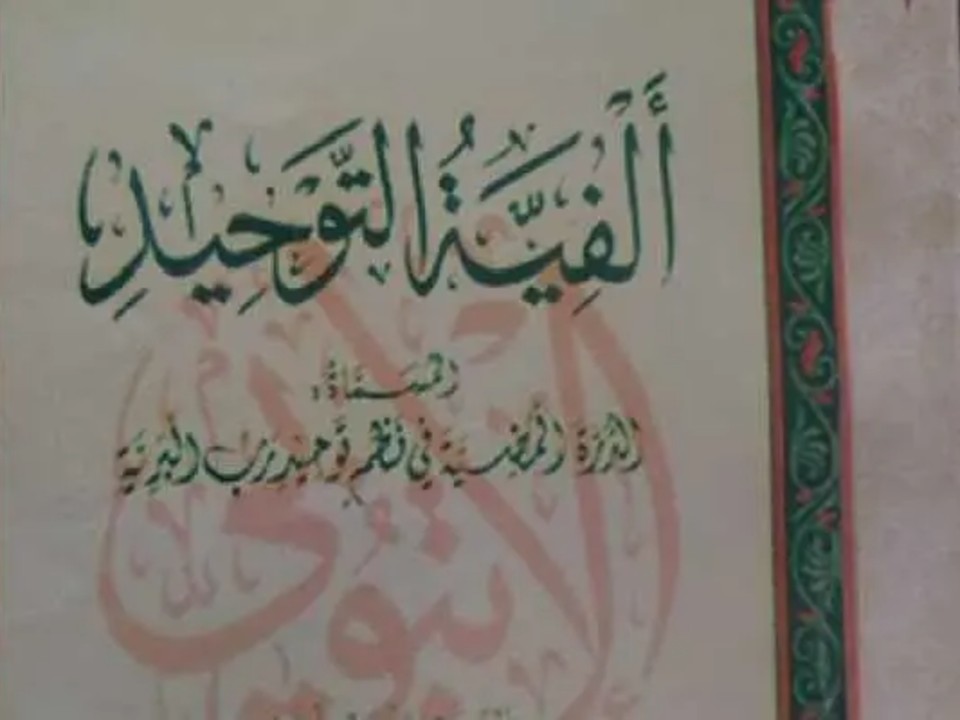 أَلْفِيَّةُ التَّوْحِيدِ
المسَمَّاةُ:
الدُّرَّةُ المُضِيَّةِ فِي نَظْمِ تَوْحِيدِ رَبِّ البَرِيَّةِ